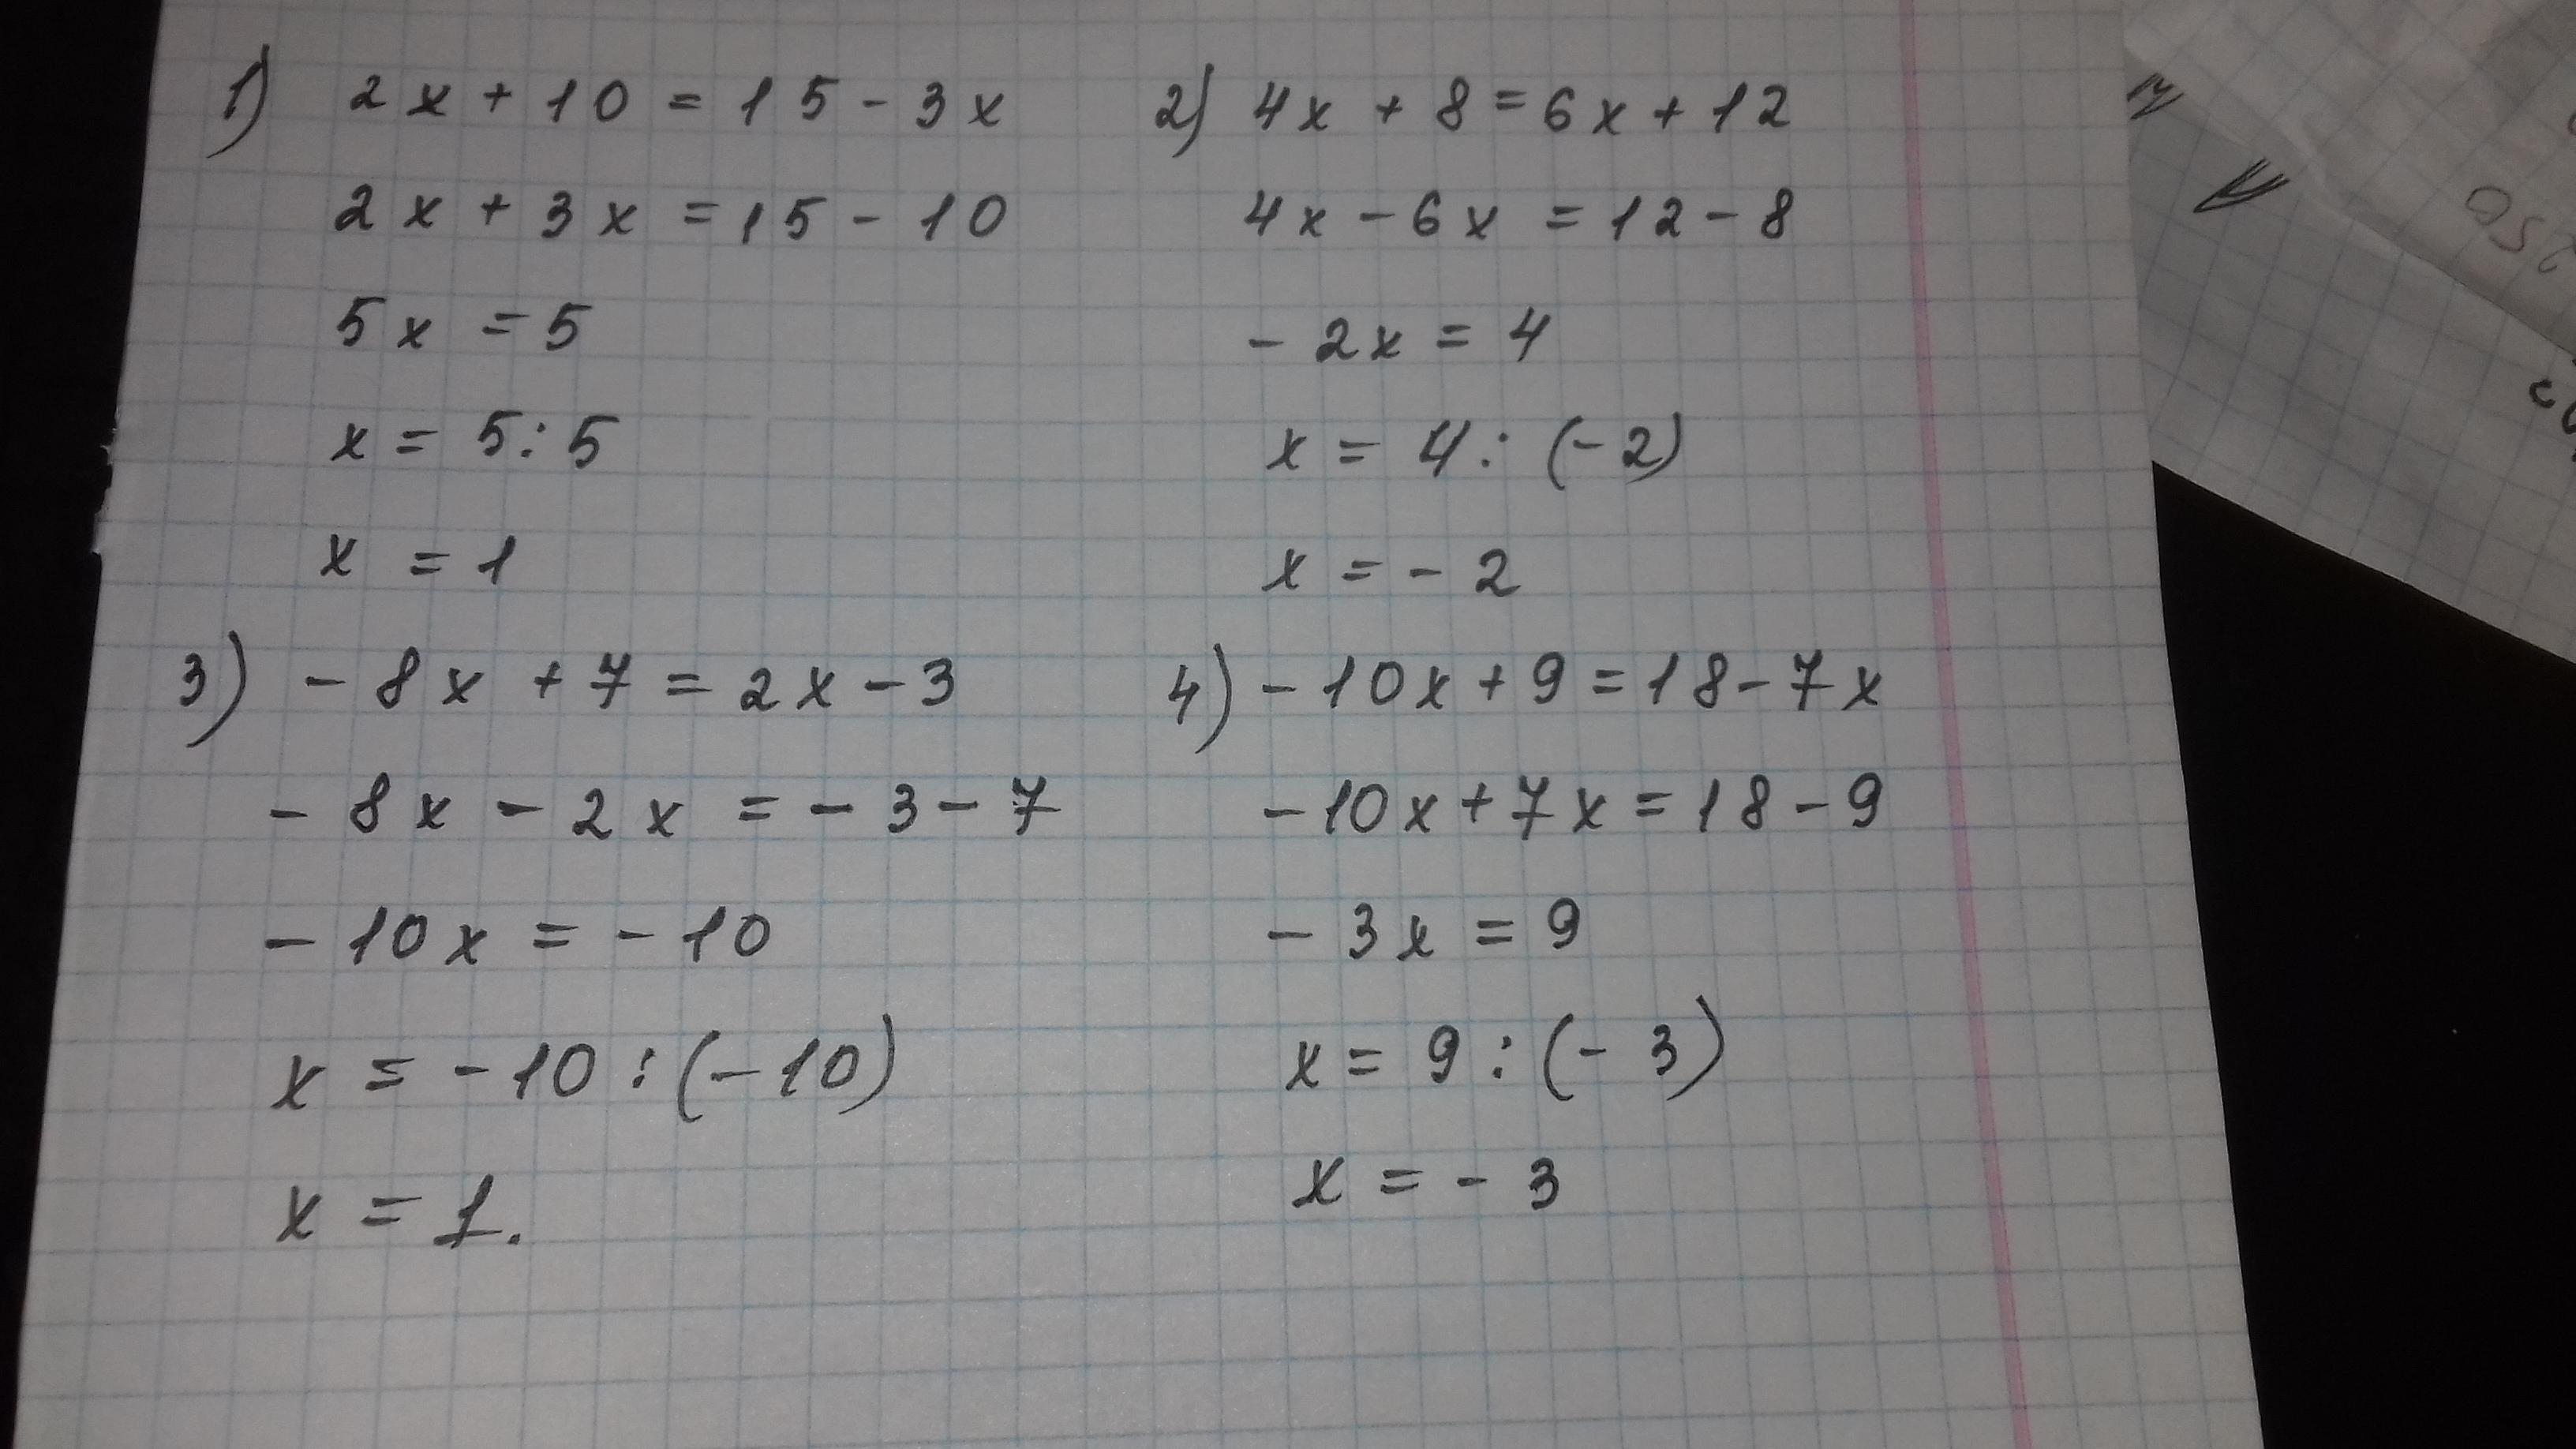 1) 2x + 10 = 15 - 3x
2x + 3x = 15 - 10
5x = 5
x = 5 : 5
x = 1
2) 4x + 8 = 6x + 12
4x - 6x = 12 - 8
- 2x = 4
x = 4 : (-2)
x = - 2
3) - 8x + 7 = 2x - 3
- 8x - 2x = - 3 - 7
- 10x = - 10
x = - 10 : (-10)
x = 1.
4) - 10x + 9 = 18 - 7x
- 10x + 7x = 18 - 9
- 3x = 9
x = 9 : (- 3)
x = - 3